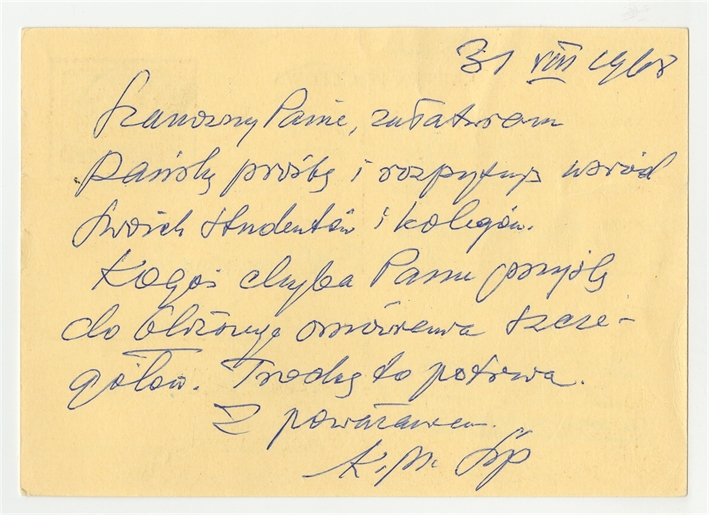 31 VIII 1968
Szanowny Panie, załatwiam
Pańską prośbę i rozpytuję wśród
swoich studentów i kolegów.
Kogoś chyba Panu przyślę
do bliższego omówienia szcze-
gółów. Trochę to potrwa.
Z poważaniem
K. M.